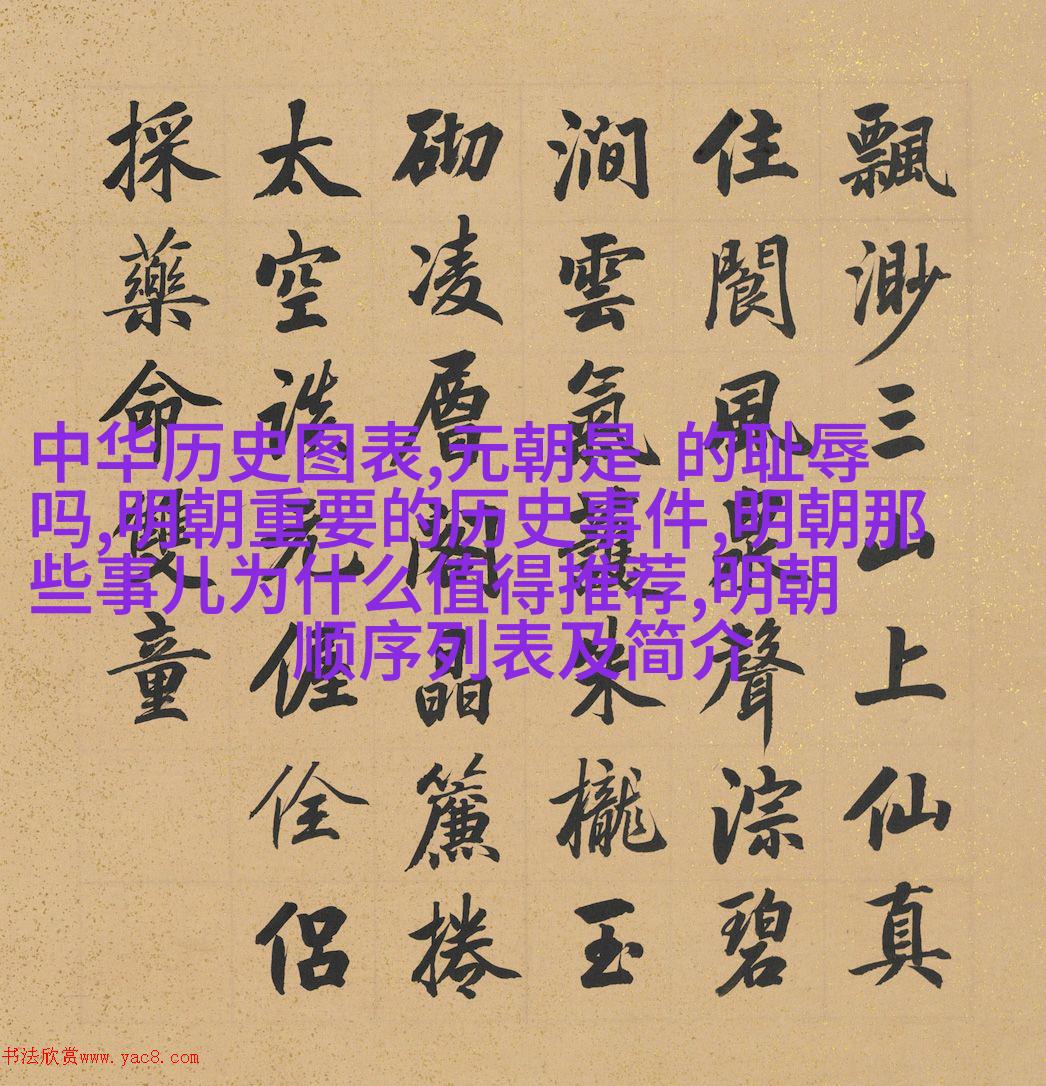 飄渺三山上仙真
住閬風泉聲淙碧
澗雲氣護朱櫳玉
砌凌層閣晶簾捲
太空偓佺侶
採藥命雙童
中华历史图表,元朝是 的耻辱
吗,明朝重要的历史事件,明朝那
些事儿为什么值得推荐,明朝
顺序列表及简介
书法欣赏www.yac8.com